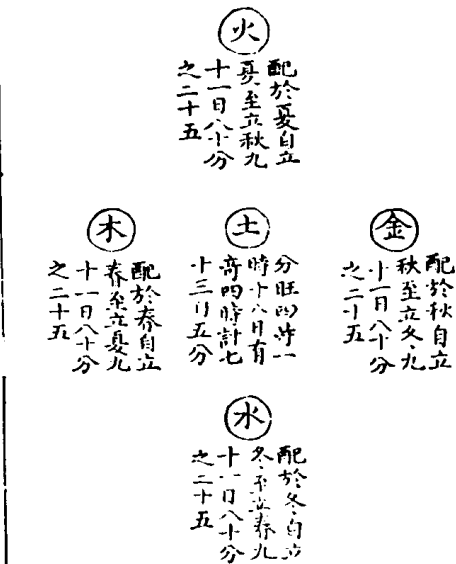 火
配於夏自立
夏至立秋九
十一日八十分
之二十五
金
配於秋自立
秋至立冬九
十一日八十分
之二十五
土
分旺四時一
時十八日有
竒四時計七
十三日五分
木
配於春自立
春至立夏九
十一日八十分
之二十五
水
配於冬自立
冬至立春九
十一日八十分
之二十五